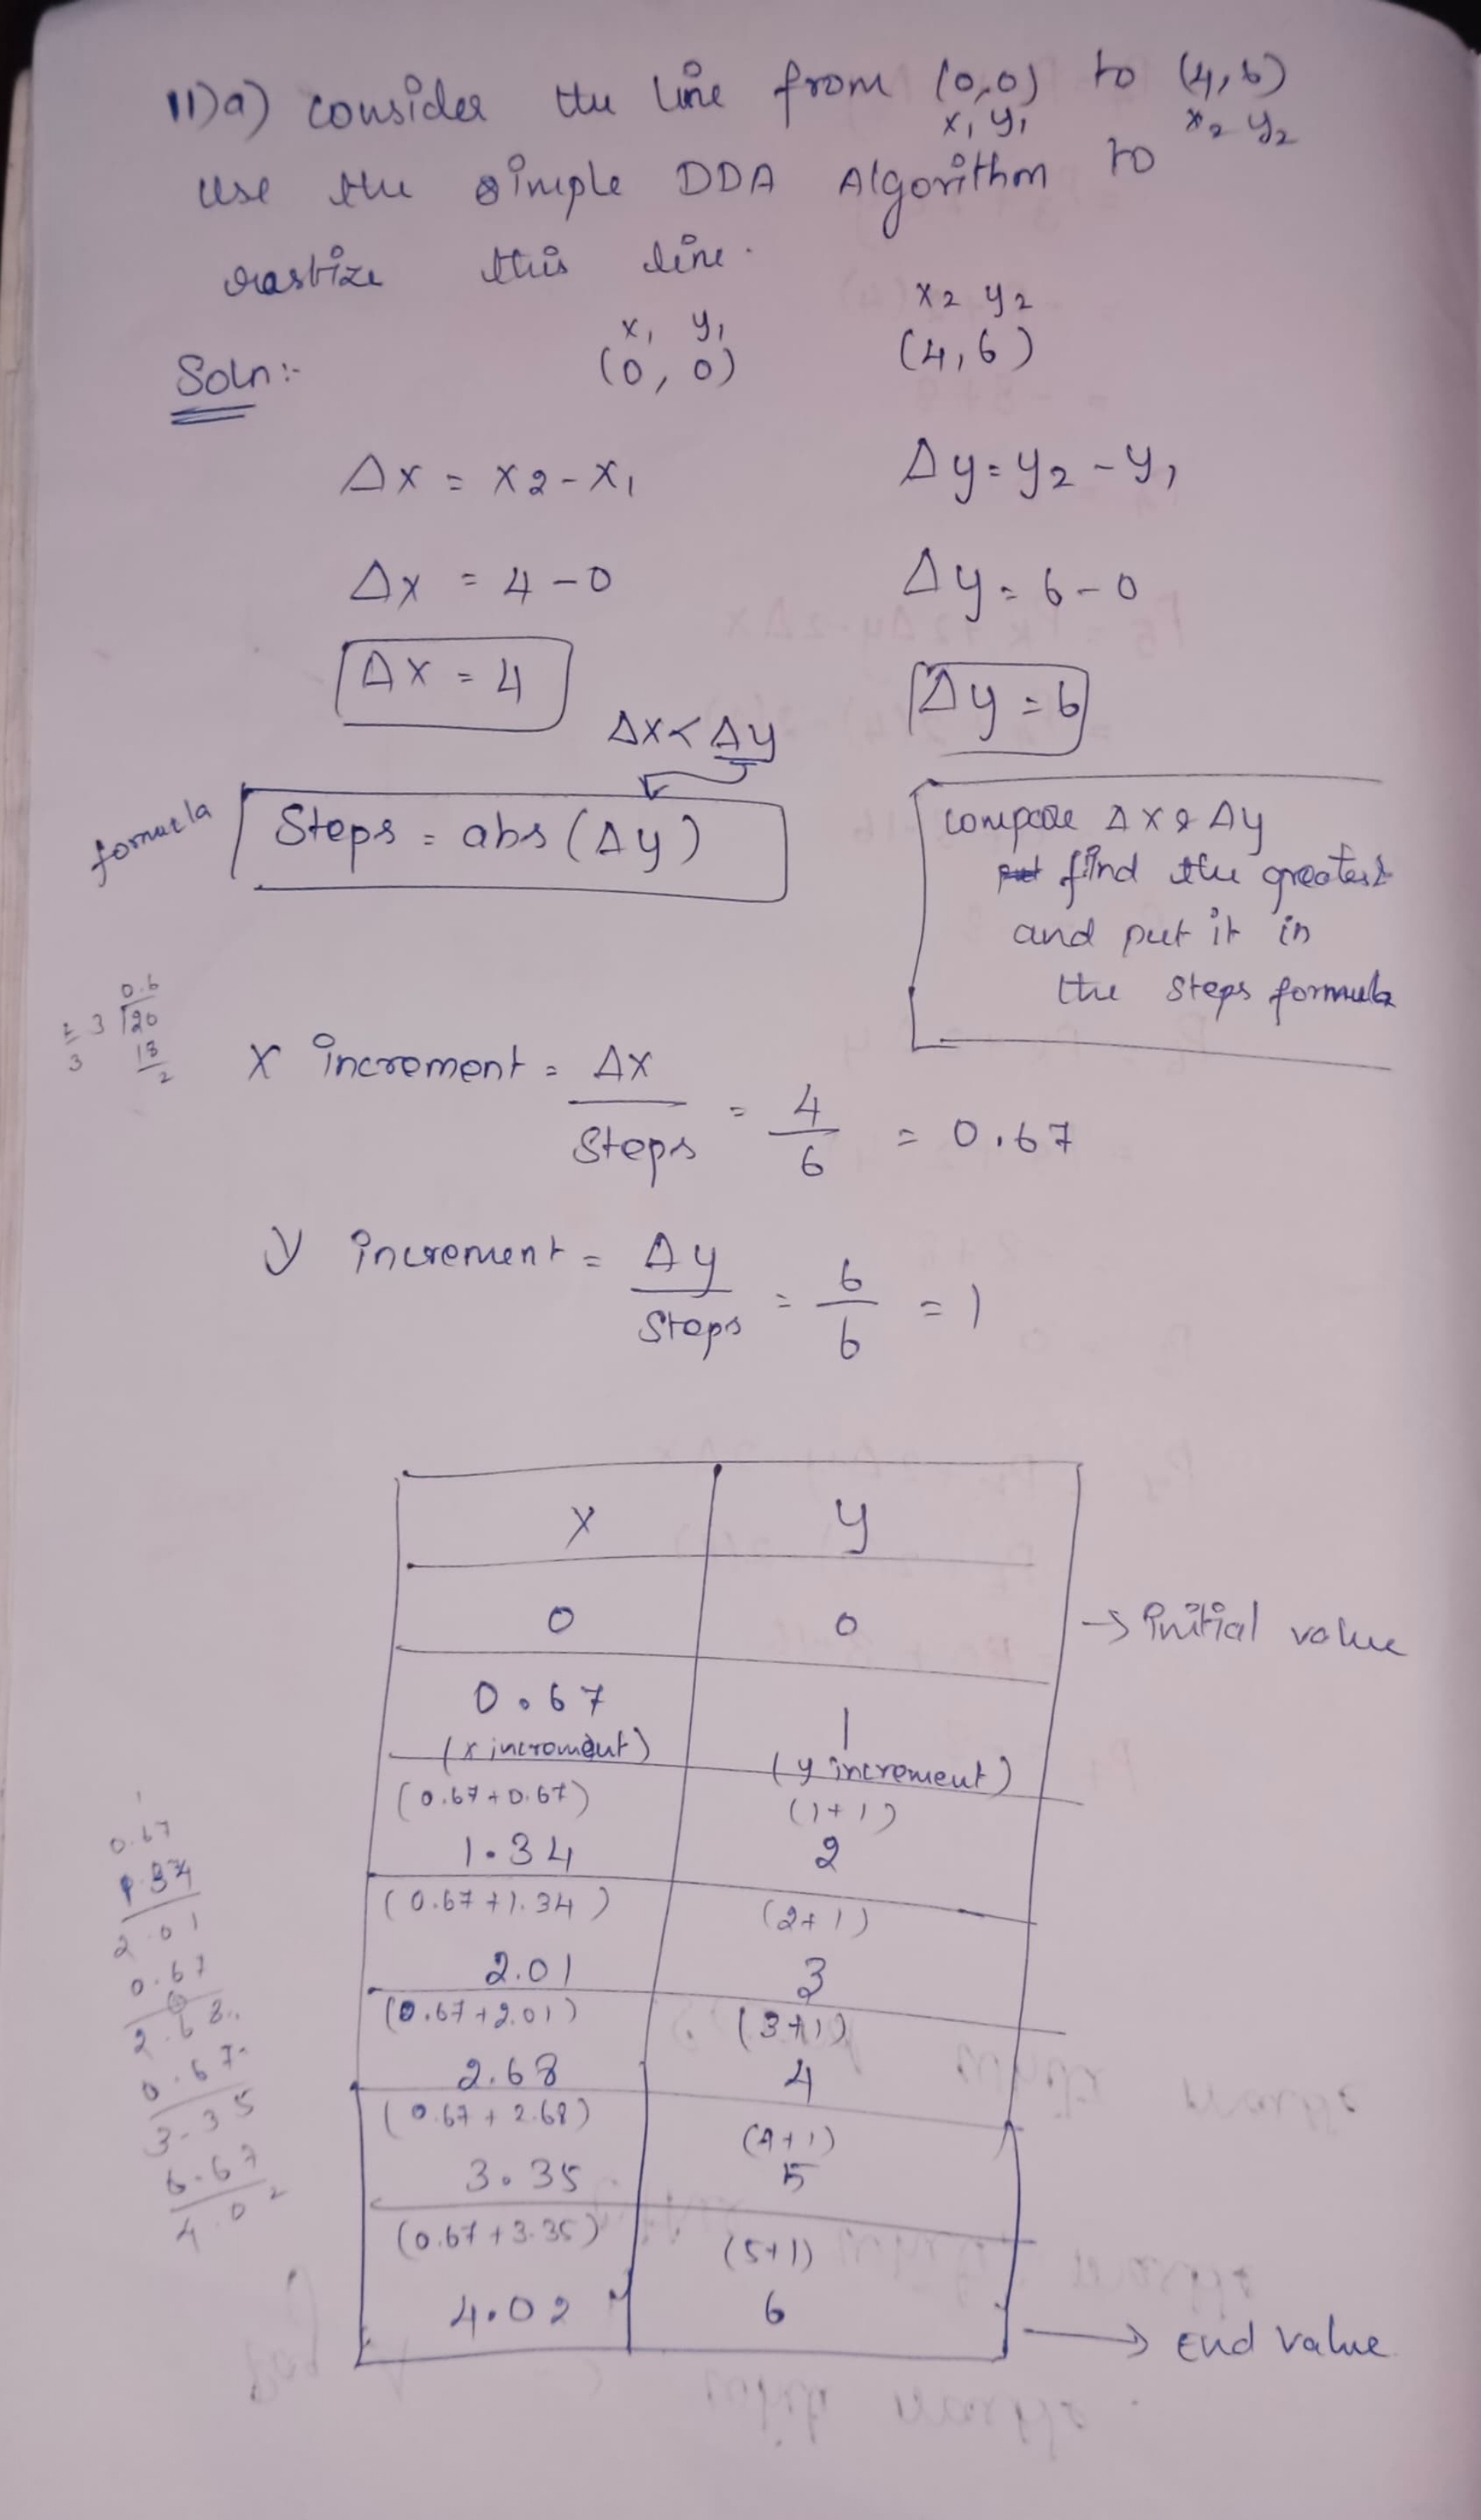 11)a) consider the line from (0,0) to (4,6)
x₁ y₁ x₂ y₂
use the simple DDA Algorithm to
rastize this line.
x₁ y₁ x₂ y₂
Soln:- (0, 0) (4,6)
Δx = x₂-x₁ Δy=y₂-y₁
Δx = 4-0 Δy=6-0
Δx = 4 Δy=6
Δx<Δy
formula Steps = abs (Δy)
compare Δx & Δy
find the greatest
and put it in
the steps formula
0.6
2/3 3 20
18
2
X increment = Δx/Steps = 4/6 = 0.67
y increment = Δy/Steps = 6/6 = 1
x y
0 0 → initial value
0.67 1
(x increment) (y increment)
(0.67+0.67) (1+1)
1.34 2
(0.67+1.34) (2+1)
2.01 3
(0.67+2.01) (3+1)
2.68 4
(0.67+2.68) (4+1)
3.35 5
(0.67+3.35) (5+1)
4.02 6 → End value
0.67
1.34
2.01
0.67
2.68
0.67
3.35
0.67
4.02